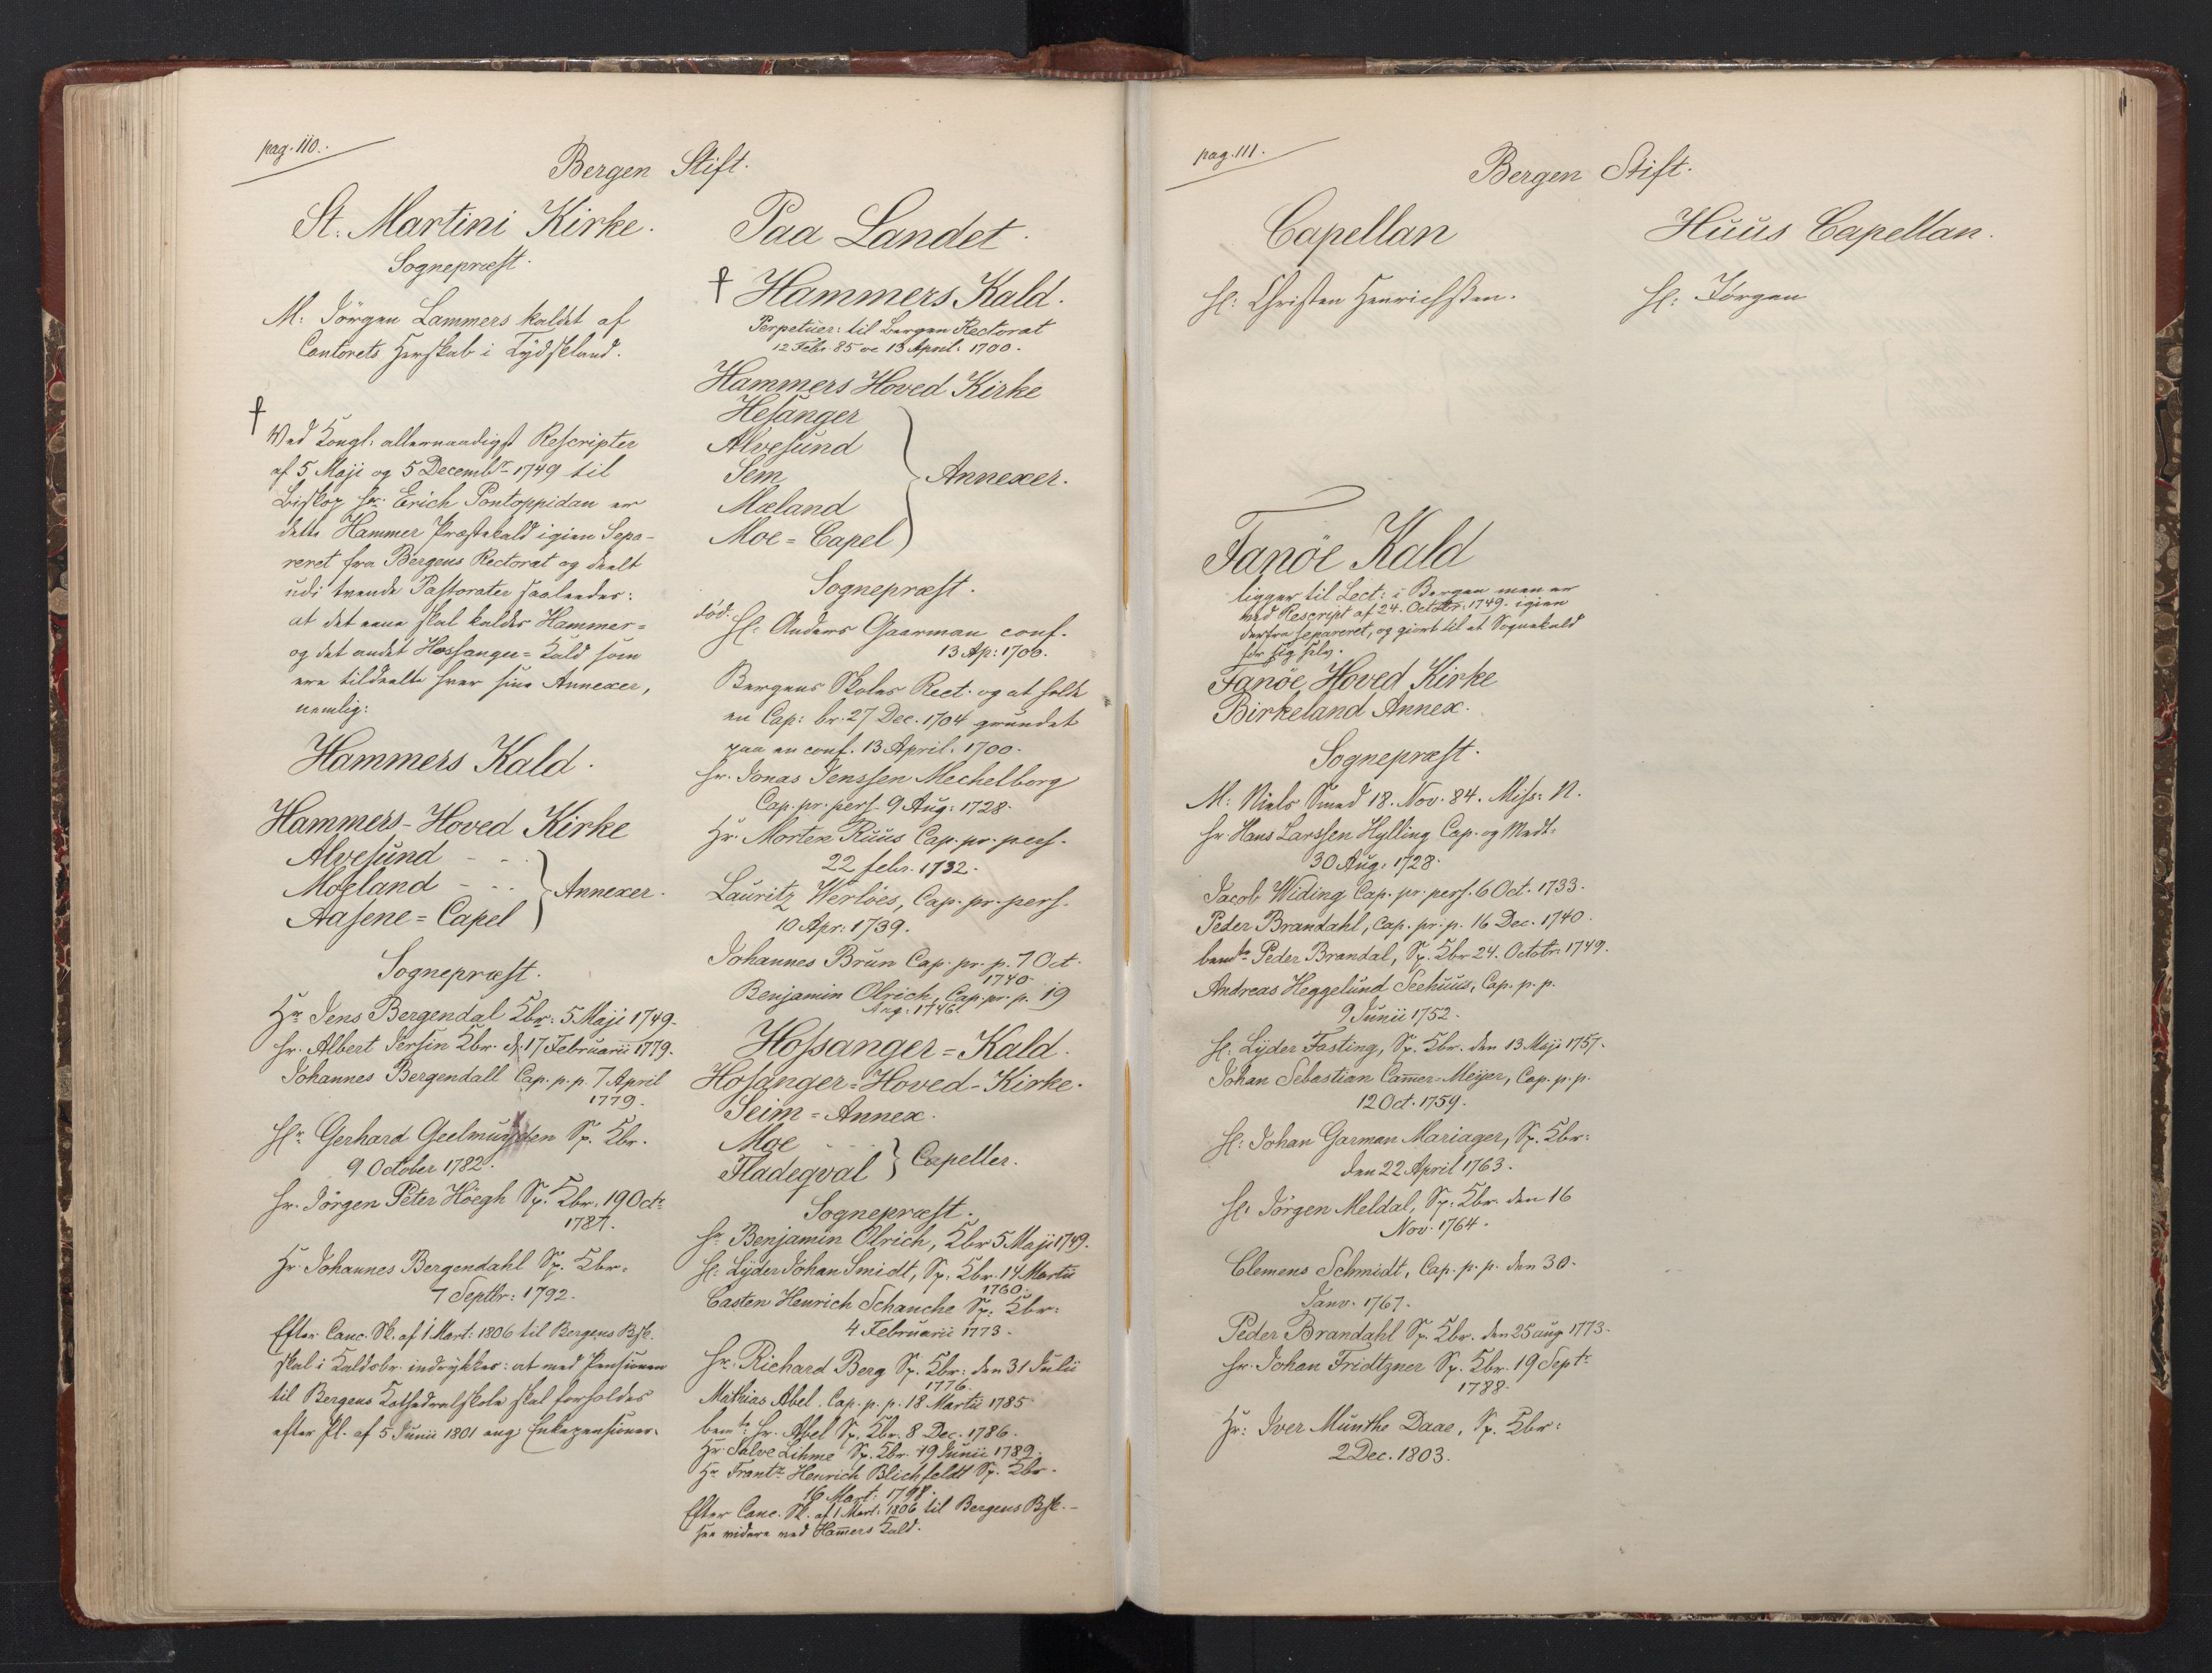 pag. 110.
Bergen Stift.
St. Martini Kirke.
Sognepræst.
M: Jörgen Lammers kaldet af
Contorets Herskab i Tydskland.
†
Ved Kongl: allernaadigst Rescripter
af 5 Maji og 5 Decembr 1749 til
Biskop Hr. Erich Pontoppidan er
dette Hammer Præstekald igien Sepa-
reret fra Bergens Rectorat og deelt
udi tvende Pastorater saaledes:
at det eene skal kaldes Hammer=
og det andet Hossanger= Kald som
ere tildeelte hver sine Annexer,
nemlig:
Hammers Kald.
Hammers-Hoved Kirke
Alvesund - - -
Moeland - - -
Aasene=Capel
Annexer.
Sognepræst.
Hr Jens Bergendal Kbr: 5 Maji 1749.
Hr. Albert Jersin Kbr. d. 17 Februarii 1779.
Johannes Bergendall Cap. p. p. 7 April
1779.
Hr Gerhard Geelmuyden Sp. Kbr.
9 October 1782.
Hr. Jörgen Peter Höegh Sp. Kbr. 19 Oct:
1787.
Hr Johannes Bergendahl Sp. Kbr.
7 Septbr: 1792.
Efter Canc. Sk. af 1 Mart: 1806 til Bergens Bsk.
skal i Kaldsbr. indrykkes: at med Pensionen
til Bergens Kathedralskole skal forholdes
efter Pl. af 5 Junii 1801 ang: Enkepensioner.
Paa Landet.
† Hammers Kald.
Perpetüer: til Bergen Rectorat
12 Febr. 85 oc 13 April: 1700.
Hammers Hoved Kirke
Hesanger
Alvesund
Sem
Mæland
Moe=Capel
Annexer.
Sognepræst.
död. H: Anders Gaarman conf.
13 Ap: 1700.
Bergens Skoles Rect. og at holde
en Cap: br. 27 Dec. 1704 grundet
paa en conf. 13 April. 1700.
Hr. Jonas Jenssen Mechelborg
Cap. pr. pers. 9 Aug: 1728.
Hr. Morten Ruus Cap. pr. pers.
22 febr. 1732.
Lauritz Werlöes, Cap. pr. pers.
10 Apr: 1739.
Johannes Brun Cap. pr. p. 7 Oct.
1740.
Benjamin Olrich, Cap. pr. p. 19
Aug: 1746.
Hossanger=Kald.
Hosanger=Hoved-Kirke.
Seim=Annex.
Moe - - -
Fladeqval
Capeller.
Sognepræst.
Hr Benjamin Olrich, Kbr 5 Maji 1749.
H: Lyder Johan Smidt, Sp: Kbr. 14 Martii
1760.
Casten Henrich Schanche Sp: Kbr:
4 Februarii 1773.
Hr. Richard Berg Sp. Kbr: den 31 Julii
1776.
Mathias Abel. Cap. p. p. 18 Martii 1785
bemte Hr. Abel Sp. Kbr. 8 Dec. 1786.
Hr Salve Lihme Sp. Kbr. 19 Junii 1789.
Hr Frantz Henrich Blichfeldt Sp. Kbr.
16 Mart: 1798.
Efter Canc. Sk. af 1 Mart: 1806 til Bergens Bsk.
see videre ved Hamers Kald.
pag. 111.
Bergen Stift.
Capellan
H: Christen Henrichssen.
Huus Capellan.
H: Jörgen
Fanöe Kald
ligger til Lect: i Bergen men er
ved Rescript af 24. Octobr: 1749. igien
derfra separeret, og giort til et Sognekald
for sig selv.
Fanöe Hoved Kirke
Birkeland Annex.
Sognepræst.
M: Niels Smed 18. Nov. 84. Miss: N.
Hr. Hans Larssen Hylling Cap. og Medt:
30 Aug: 1728.
Jacob Widing Cap. pr. pers. 6 Oct. 1733.
Peder Brandahl, Cap. pr. p. 16 Dec. 1740.
bemte Peder Brandal, Sp. Kbr 24. Octobr. 1749.
Andreas Heggelund Seehuus, Cap. p. p.
9 Junii 1752.
H: Lyder Fasting, Sp. Kbr. den 13 Maji 1757.
Johan Sebastian Camer-Meyer, Cap. p. p.
12 Oct. 1759.
H: Johan Garman Mariager, Sp. Kbr:
den 22 April 1763.
H: Jörgen Meldal, Sp. Kbr. den 16
Nov. 1764.
Clemens Schmidt, Cap. p. p. den 30.
Janv. 1767.
Peder Brandahl Sp. Kbr. den 25 aug 1773.
Hr. Johan Fridtzner Sp. Kbr. 19 Septr
1788.
Hr: Iver Munthe Daae, Sp. Kbr:
2 Dec. 1803.